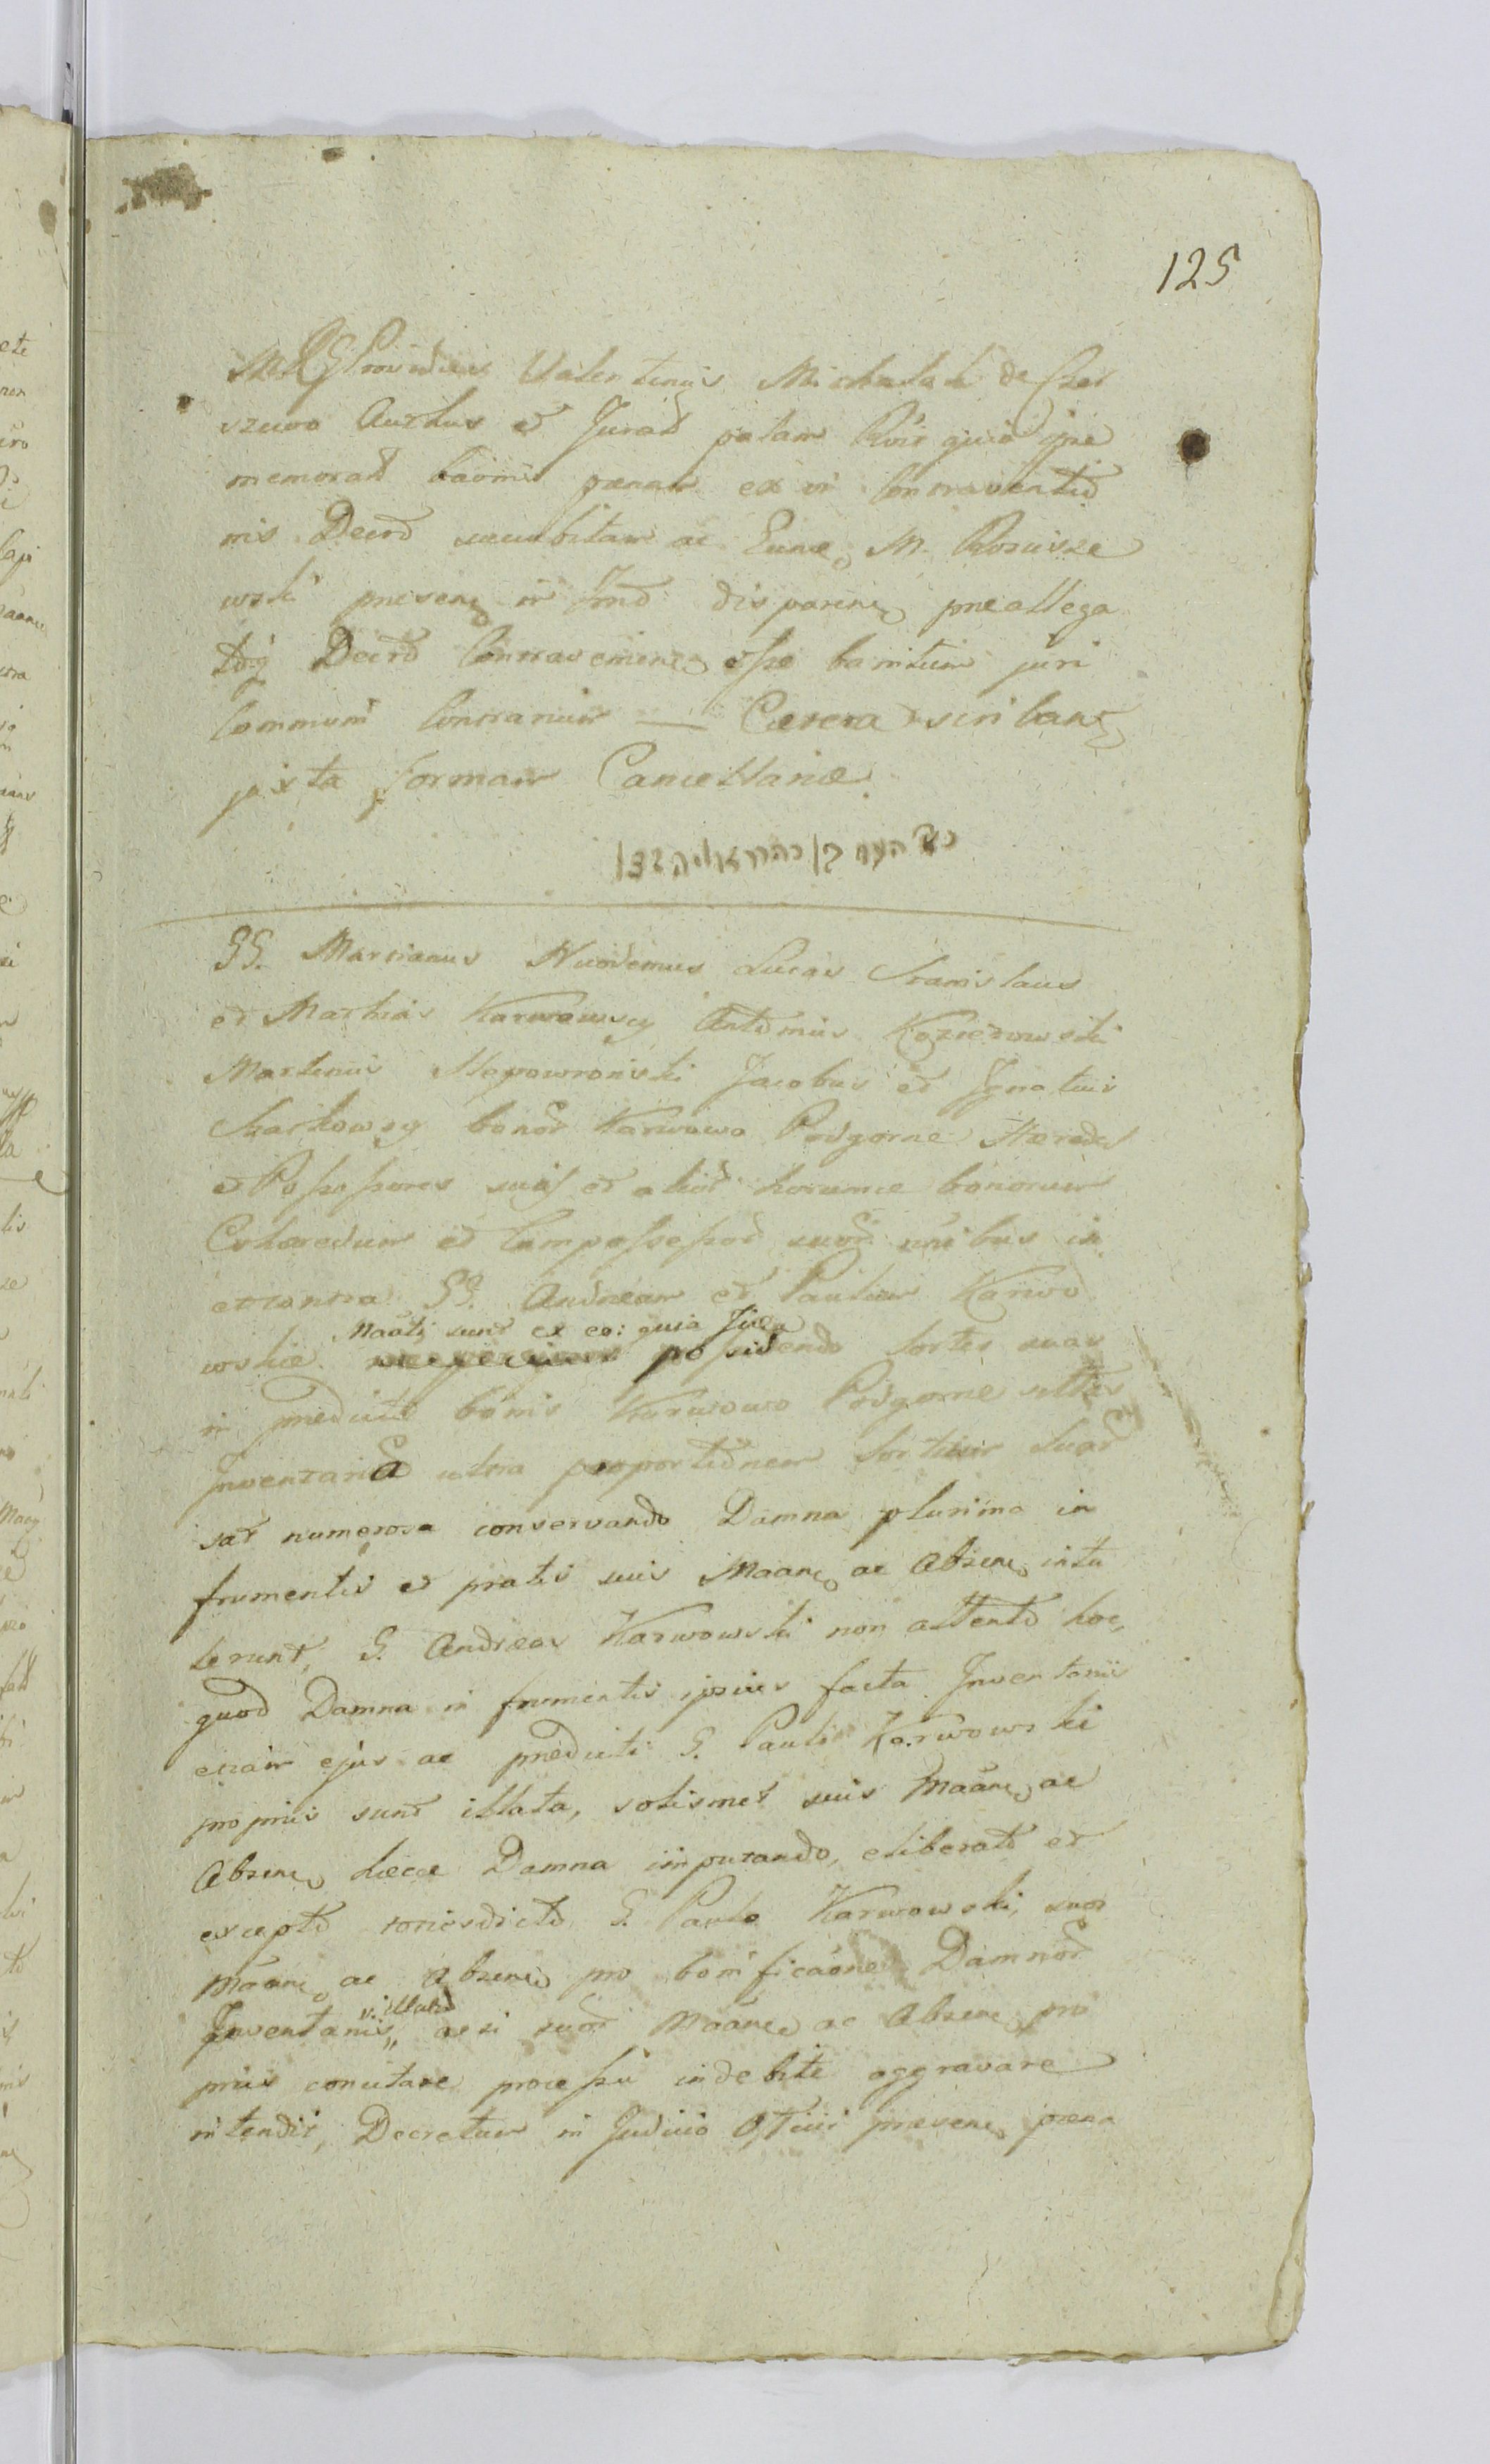 125
Providus Valentinus Michalak de Czer
szewo Authus et Jurat palam Rńs quia ipse
memorat bãomis pænam ex vi Contraventio
nis Decrö succubitam ac Eunđ M. Rosnisze
wski presenđ in Jnđ disparenđ preallega
toq Decrö Contravenienđ esse banitum juri
Communi Contrarium — Cætera scribanđ
juxta formam Cancellariæ
GG. Martianus Nicodemus Lucas Stanislaus
et Mathias Karwowscy Antonius Kozierowski
Martinus Slepowronski Jacobus et Ignatius
Szarkowscy bonör Karwowo Podgorne Hæredes
et Possessores suis et aliör horumce bonorum
Cohæredum et Compossessoö suoř nńibus in
et contra GG. Andream et Paulum Karwo
Maati sunt ex eo: quia Jidem
wskie possidendo sortes suas
in prædictis bonis Karwowo Podgorne
Inventaria ultra proportiönem Sortium Suař
sat numerosa conservando Damna plurima in
frumentis et pratis suis Maanđ ac Absenđ intu
lerunt, G. Andreas Karwowski non attentö hoc,
quod Damna in frumentis ipsius facta Inventariis
etiam ejus ac prædicti G. Pauli Karwowski
propriis sunt illata, solismet suis Maanđ ac
Absenđ hæcce Damna imputando, eliberatö et
exceptö toriesdictö G. Paulo Karwowski, suos
Maanđ ac Absenđ pro bonificãone Damnoř
illatoř
Inventariis ac si suoř Maanđ ac Absenđ pro
priis concitare processu indebite aggravare
intendit, Decretum in Judicio Offlii præsenđ pæna